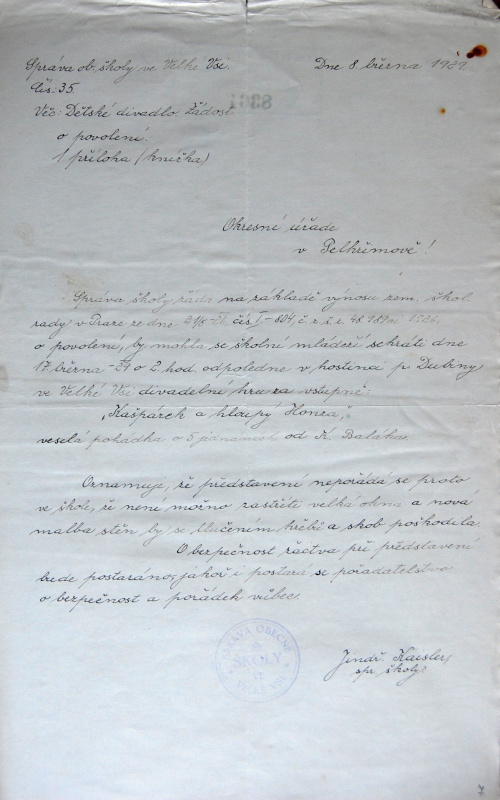 Správa ob. školy ve Velké Vsi.
Dne 8 března 1929
Čís. 35.
8361
Věc: Dětské divadlo. Žádost
o povolení.
1 příloha (knížka)
Okresní úřade
v Pelhřimově!
Správa školy žádá na základě výnosu zem. škol.
rady v Praze ze dne čís. I-804, č. z. š. r. 48.989 1926,
o povolení, by mohla se školní mládeží sehráti dne
17. března -29 o 2. hod. odpoledne v hostinci p. Dubiny
ve Velké Vsi divadelní hru za vstupné:
"Kašpárek a hloupý Honza",
veselá pohádka o 5 od K. Baláka.
Oznamuje, že představení nepořádá se proto
ve škole, že není možno zastříti velká okna a nová
malba stěn by se tlučením hřebů a skob poškodila.
O bezpečnost žactva při představení
bude postaráno, jakož i postará se pořadatelstvo
o bezpečnost a pořádek vůbec.
SPRÁVA OBECNÉ
ŠKOLY
VE
VELKÉ VSI
Jindř. Kaesler,
spr. školy.
7